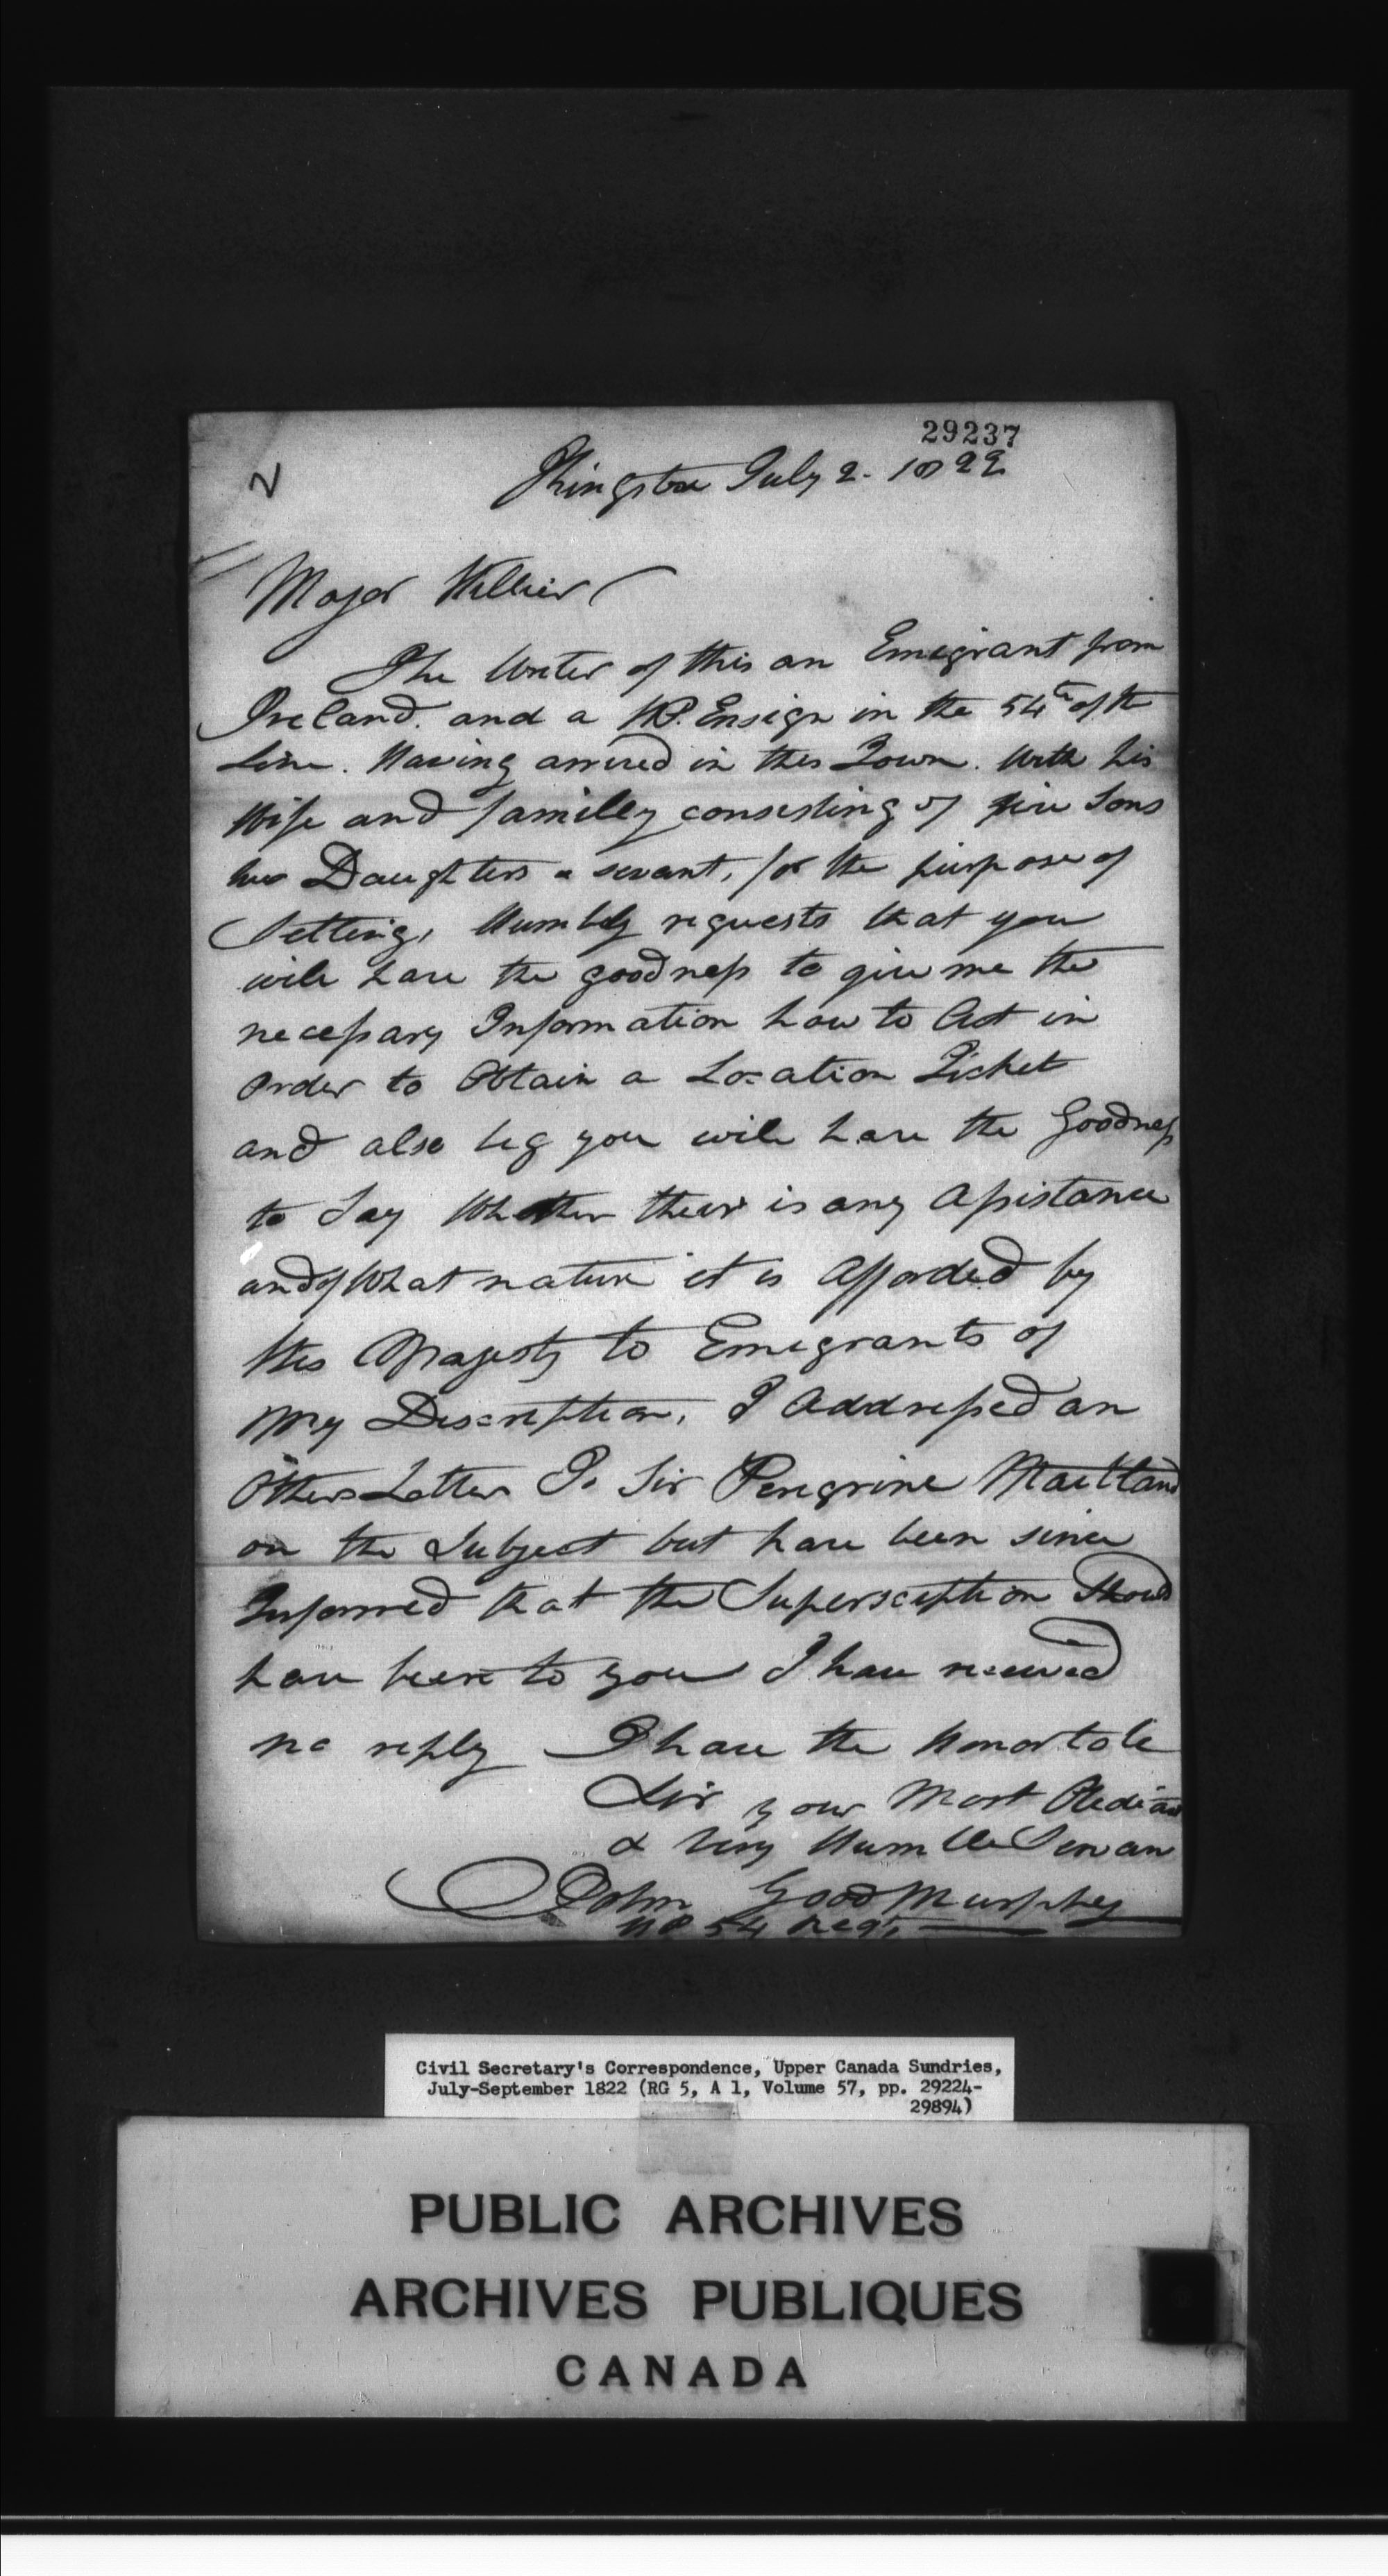 29237
2
Kingston July 2. 1822
Major Hillier
The Writer of this an Emigrant from
Ireland. and a HP. Ensign in the 54th of the
Line. Having arrived in this Town. With his
Wife and familey consisting of five Sons
two Daughters a servant, for the purpose of
Setting, Humbly requests that you
will have the goodness to give me the
necessary Information how to Act in
order to Obtain a Location Ticket
and also beg you will have the Goodness
to Say Whether their is any Assistance
and of What nature it is Afforded by
His Majesty to Emigrants of
My Description. I Addressed an
Other Letter To Sir Peregrine Maitland
on the Subject but have been since
Informed that the Supersception Should
have been to you I have received
no reply I have the Honor to be
Sir your Most Obedient
& Very Humble Servan
John Good Murphy
HP 54 Regt.
Civil Secretary's Correspondence, Upper Canada Sundries,
July-September 1822 (RG 5, A 1, Volume 57, pp. 29224-
29894)
PUBLIC ARCHIVES
ARCHIVES PUBLIQUES
CANADA